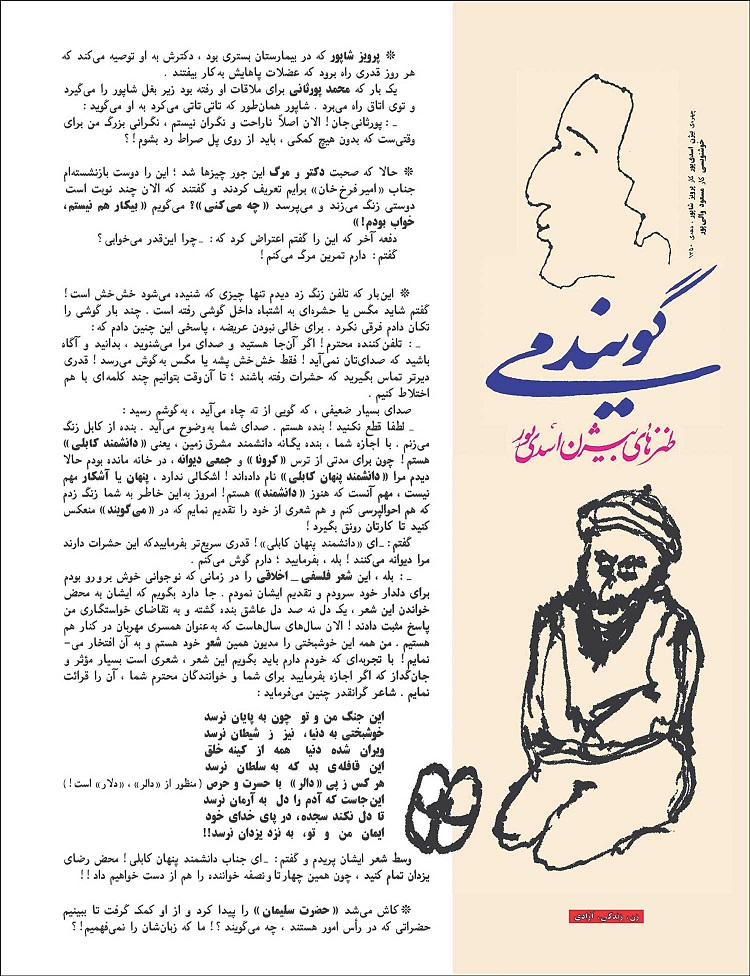 * پرویز شاپور که در بیمارستان بستری بود ، دکترش به او توصیه می‌کند که
هر روز قدری راه برود که عضلات پاهایش به‌کار بیفتند .
یک بار که محمد پورثانی برای ملاقات او رفته بود زیر بغل شاپور را می‌گیرد
و توی اتاق راه می‌برد . شاپور همان‌طور که تاتی تاتی می‌کرد به او می‌گوید :
ـ : پورثانی‌جان! الان اصلاً ناراحت و نگران نیستم ، نگرانی بزرگ من برای
وقتی‌ست که بدون هیچ کمکی ، باید از روی پل صراط رد بشوم!؟
* حالا که صحبت دکتر و مرگ این جور چیزها شد ؛ این را دوست بازنشسته‌ام
جناب «امیر فرخ خان» برایم تعریف کردند و گفتند که الان چند نوبت است
دوستی زنگ می‌زند و می‌پرسد «چه می‌کنی»؟ می‌گویم «بیکار هم نیستم،
خواب بودم!»
دفعه آخر که این را گفتم اعتراض کرد که : ـ چرا این‌قدر می‌خوابی؟
گفتم : دارم تمرین مرگ می‌کنم!
* این‌بار که تلفن زنگ زد دیدم تنها چیزی که شنیده می‌شود خش‌خش است!
گفتم شاید مگس یا حشره‌ای به اشتباه داخل گوشی رفته است . چند بار گوشی را
تکان دادم فرقی نکرد . برای خالی نبودن عریضه ، پاسخی این چنین دادم که :
ـ : تلفن‌کننده محترم! اگر آن‌جا هستید و صدای مرا می‌شنوید ، بدانید و آگاه
باشید که صدای‌تان نمی‌آید! فقط خش‌خش پشه یا مگس به‌گوش می‌رسد! قدری
دیرتر تماس بگیرید که حشرات رفته باشند ؛ تا آن‌وقت بتوانیم چند کلمه‌ای با هم
اختلاط کنیم .
صدای بسیار ضعیفی ، که گویی از ته چاه می‌آید ، به‌گوشم رسید :
ـ لطفا قطع نکنید! بنده هستم . صدای شما به‌وضوح می‌آید . بنده از کابل زنگ
می‌زنم . با اجازه شما ، بنده یگانه دانشمند مشرق زمین ، یعنی «دانشمند کابلی»
هستم! چون برای مدتی از ترس «کرونا» و جمعی دیوانه ، در خانه مانده بودم حالا
دیدم مرا «دانشمند پنهان کابلی» نام داده‌اند! اشکالی ندارد ، پنهان یا آشکار مهم
نیست ، مهم آنست که هنوز «دانشمند» هستم! امروز به‌این خاطر به شما زنگ زدم
که هم احوالپرسی کنم و هم شعری از خود را تقدیم نمایم که در «می‌گویند» منعکس
کنید تا کارتان رونق بگیرد!
گفتم : ـ ای «دانشمند پنهان کابلی»! قدری سریع‌تر بفرمایید‌که این حشرات دارند
مرا دیوانه می‌کنند! بله ، بفرمایید ؛ دارم گوش می‌کنم .
ـ : بله ، این شعر فلسفی ـ اخلاقی را در زمانی که نوجوانی خوش برورو بودم
برای دلدار خود سرودم و تقدیم ایشان نمودم . جا دارد بگویم که ایشان به محض
خواندن این شعر ، یک دل نه صد دل عاشق بنده گشته و به تقاضای خواستگاری من
پاسخ مثبت دادند! الان سال‌های سال‌هاست که به‌عنوان همسری مهربان در کنار هم
هستیم . من همه این خوشبختی را مدیون همین شعر خود هستم و به آن افتخار می‌ـ
نمایم! با تجربه‌ای که خودم دارم باید بگویم این شعر ، شعری است بسیار مؤثر و
جان‌گداز که اگر اجازه بفرمایید برای شما و خوانندگان محترم شما ، آن را قرائت
نمایم . شاعر گرانقدر چنین می‌فرماید :
این جنگ من و تو چون به پایان نرسد
خوشبختی به دنیا، نیز ز شیطان نرسد
ویران شده دنیا همه از کینه خلق
این قافله‌ی بد که به سلطان نرسد
هر کس ز پی «دالر» با حسرت و حرص (منظور از «دالر» ، «دلار» است!)
این جاست که آدم را دل به آرمان نرسد
تا دل نکند سجده، در پای خدای خود
ایمان من و تو، به نزد یزدان نرسد!!
وسط شعر ایشان پریدم و گفتم : ـ ای جناب دانشمند پنهان کابلی! محض رضای
یزدان تمام کنید ، چون همین چهارتا‌و‌نصفه خواننده را هم از دست خواهیم داد!!
* کاش می‌شد «حضرت سلیمان» را پیدا کرد و از او کمک گرفت تا ببینیم
حضراتی که در رأس امور هستند ، چه می‌گویند؟! ما که زبان‌شان را نمی‌فهمیم!؟
چهره‌ی بیژن اسدی‌پور کار پرویز شاپور ،
خوشنویسی کار مسعود والی‌پور
می‌گویند
طنزهای بیژن اسدی‌پور
زن ، زندگی ، آزادی